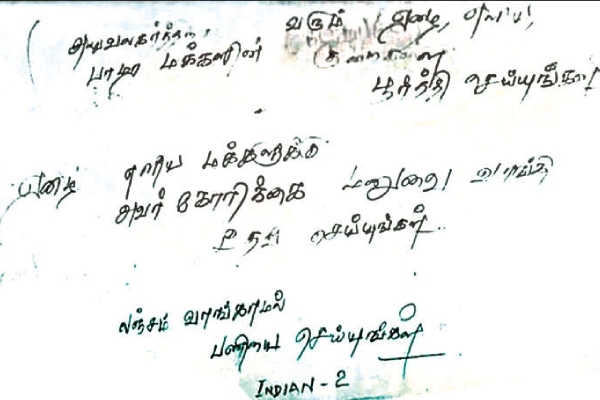 அலுவலகத்திற்கு வரும் ஏழை, எளிய,
பாமர மக்களின் குறைகளை
பூர்த்தி செய்யுங்கள்
ஏழை எளிய மக்களுக்கு
அவர் கோரிக்கை மனுவை வாங்கி
உதவி செய்யுங்கள்.
லஞ்சம் வாங்காமல்
பணியை செய்யுங்கள்
INDIAN - 2